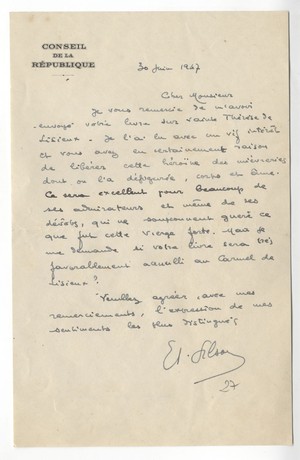 CONSEIL
DE LA
RÉPUBLIQUE
30 juin 1947
Cher Monsieur
Je vous remercie de m'avoir
envoyé votre livre sur sainte Thérèse de
Lisieux. Je l'ai lu avec un vif intérêt
et vous avez eu certainement raison
de libérer cette héroïne des mièvreries
dont on l'a défigurée, corps et âme.
Ce sera excellent pour beaucoup de
ses admirateurs et même de ses
dévots, qui ne soupçonnent guère ce
que fut cette vierge forte. Mais je
me demande si votre livre sera très
favorablement accueilli au Carmel de
Lisieux ?
Veuillez agréer, avec mes
remerciements, l'expression de mes
sentiments les plus distingués
Et. Gilson
27